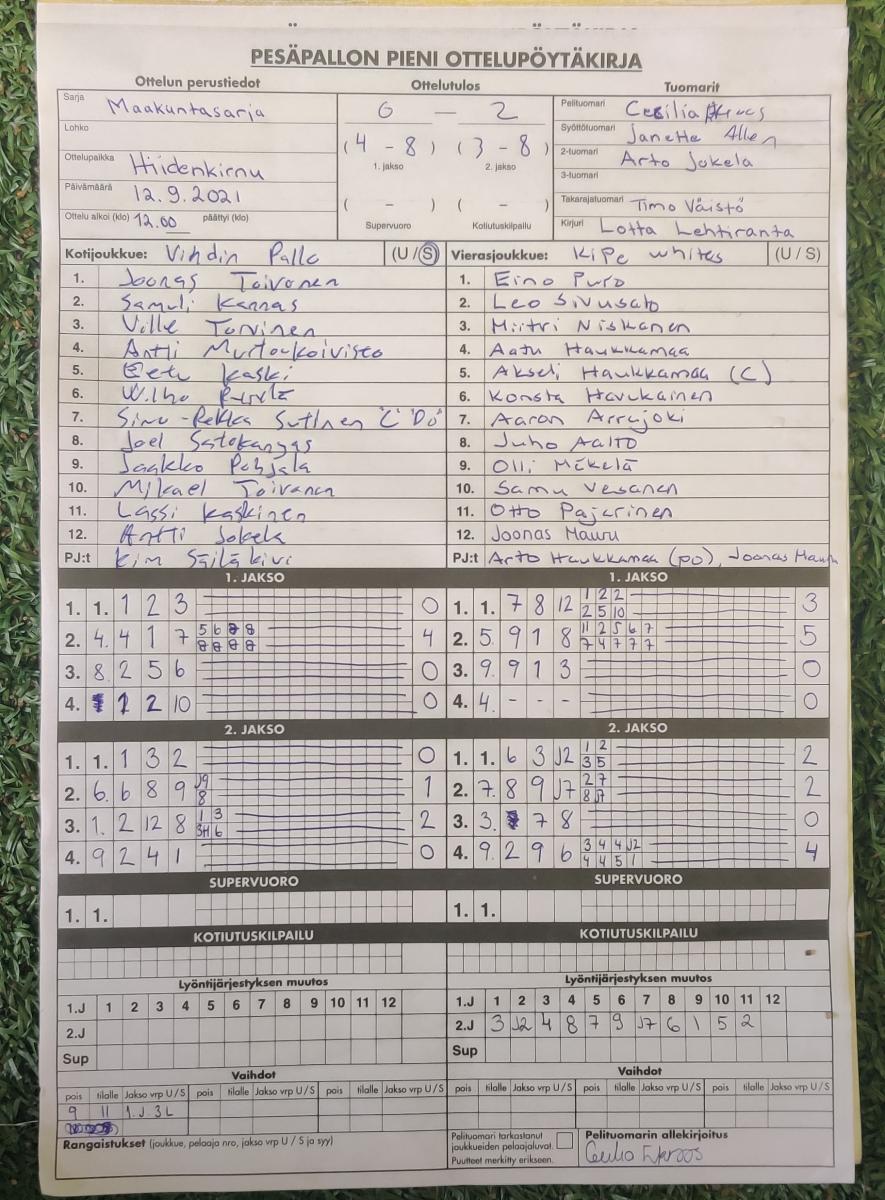 PESÄPALLON PIENI OTTELUPÖYTÄKIRJA
Ottelun perustiedot
Ottelutulos
Tuomarit
Sarja Maakuntasarja
Lohko
Ottelupaikka Hiidenkirnu
Päivämäärä 12.9.2021
Ottelu alkoi (klo) 12.00 päättyi (klo)
0 — 2
(4 - 8) (3 - 8)
1. jakso 2. jakso
( - ) ( - )
Supervuoro Kotiutuskilpailu
Pelituomari Cecilia
Syöttötuomari Janette Allen
2-tuomari Arto Jokela
3-tuomari
Takarajatuomari Timo Väistö
Kirjuri Lotta Lehtiranta
Kotijoukkue: Vihdin Pallo (U / S)
1. Joonas Toivonen
2. Samuli Kannas
3. Ville Torvinen
4. Antti
5. Eetu Kaski
6. Wilho
7. Simo-Pekka Sutinen "C" Dö
8. Joel Satokangas
9. Jaakko Pohjala
10. Mikael Toivanen
11. Lassi Kaskinen
12. Antti Jokela
PJ:t Kim Säiläkivi
Vierasjoukkue: KiPe Whites (U / S)
1. Eino Puro
2. Leo Sivusalo
3. Miitri Niskanen
4. Aatu Haukkamaa
5. Akseli Haukkamaa (C)
6. Konsta Havukainen
7. Aaron Arrajoki
8. Juho Aalto
9. Olli Mäkelä
10. Samu Vesanen
11. Otto Pajarinen
12. Joonas Mauru
PJ:t Arto Haukkamaa (po), Joonas Mauru
1. JAKSO
1. 1. 1 2 3 0
2. 4. 4 1 7 5 6 8 8 4
8 8 8 8
3. 8. 2 5 6 0
4. 1 2 10 0
1. JAKSO
1. 1. 7 8 12 1 2 2 3
2 5 10
2. 5. 9 1 8 11 2 5 6 7 5
7 4 7 7 7
3. 9. 9 1 3 0
4. 4. - - - 0
2. JAKSO
1. 1. 1 3 2 0
2. 6. 6 8 9 J9 1
8
3. 1. 2 12 8 1 3 2
3H 6
4. 9 2 4 1 0
2. JAKSO
1. 1. 6 3 J2 1 2 2
3 5
2. 7. 8 9 J7 2 7 2
8 J7
3. 3. 7 8 0
4. 9. 2 9 6 3 4 4 J2 4
4 4 5 1
SUPERVUORO
1. 1.
SUPERVUORO
1. 1.
KOTIUTUSKILPAILU
KOTIUTUSKILPAILU
Lyöntijärjestyksen muutos
1.J 1 2 3 4 5 6 7 8 9 10 11 12
2.J
Sup
Lyöntijärjestyksen muutos
1.J 1 2 3 4 5 6 7 8 9 10 11 12
2.J 3 J2 4 8 7 9 J7 6 1 5 2
Sup
Vaihdot
pois tilalle Jakso vrp U / S pois tilalle Jakso vrp U / S pois tilalle Jakso vrp U / S
9 11 1.J 3L
Vaihdot
pois tilalle Jakso vrp U / S pois tilalle Jakso vrp U / S pois tilalle Jakso vrp U / S
Rangaistukset (joukkue, pelaaja nro, jakso vrp U / S ja syy)
Pelituomari tarkastanut
joukkueiden pelaajaluvat.
Puutteet merkitty erikseen.
Pelituomarin allekirjoitus